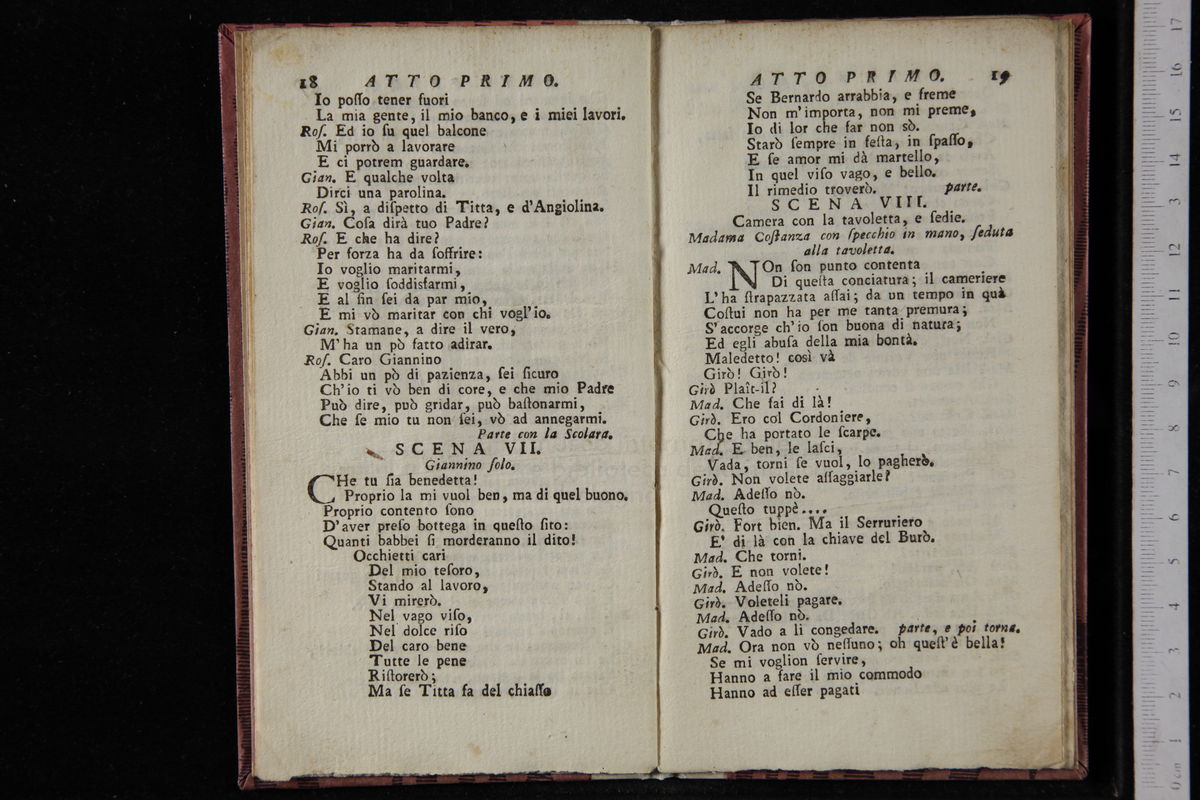 18 ATTO PRIMO.
Io poſſo tener fuori
La mia gente, il mio banco, e i miei lavori.
Roſ. Ed io ſu quel balcone
Mi porrò a lavorare
E ci potrem guardare.
Gian. E qualche volta
Dirci una parolina.
Roſ. Sì, a diſpetto di Titta, e d'Angiolina.
Gian. Coſa dirà tuo Padre?
Roſ. E che ha dire?
Per forza ha da ſoffrire:
Io voglio maritarmi,
E voglio ſoddisfarmi,
E al fin ſei da par mio,
E mi vò maritar con chi vogl'io.
Gian. Stamane, a dire il vero,
M'ha un pò fatto adirar.
Roſ. Caro Giannino
Abbi un pò di pazienza, ſei ſicuro
Ch'io ti vò ben di core, e che mio Padre
Può dire, può gridar, può baſtonarmi,
Che ſe mio tu non ſei, vò ad annegarmi.
Parte con la Scolara.
SCENA VII.
Giannino ſolo.
CHe tu ſia benedetta!
Proprio la mi vuol ben, ma di quel buono.
Proprio contento ſono
D'aver preſo bottega in queſto ſito:
Quanti babbei ſi morderanno il dito!
Occhietti cari
Del mio teſoro,
Stando al lavoro,
Vi mirerò.
Nel vago viſo,
Nel dolce riſo
Del caro bene
Tutte le pene
Riſtorerò;
Ma ſe Titta fa del chiaſſo
ATTO PRIMO. 19
Se Bernardo arrabbia, e freme
Non m'importa, non mi preme,
Io di lor che far non sò.
Starò ſempre in feſta, in ſpaſſo,
E ſe amor mi dà martello,
In quel viſo vago, e bello.
Il rimedio troverò. parte.
SCENA VIII.
Camera con la tavoletta, e ſedie.
Madama Coſtanza con ſpecchio in mano, ſeduta
alla tavoletta.
Mad. NOn ſon punto contenta
Di queſta conciatura; il cameriere
L'ha ſtrapazzata aſſai; da un tempo in quà
Coſtui non ha per me tanta premura;
S'accorge ch'io ſon buona di natura;
Ed egli abuſa della mia bontà.
Maledetto! così và
Girò! Girò!
Girò Plaît-il?
Mad. Che fai di là!
Girò. Ero col Cordoniere,
Che ha portato le ſcarpe.
Mad. E ben, le laſci,
Vada, torni ſe vuol, lo pagherò.
Girò. Non volete aſſaggiarle?
Mad. Adeſſo nò.
Queſto tuppè....
Girò. Fort bien. Ma il Serruriero
E' di là con la chiave del Burò.
Mad. Che torni.
Girò. E non volete!
Mad. Adeſſo nò.
Girò. Voleteli pagare.
Mad. Adeſſo nò.
Girò. Vado a li congedare. parte, e poi torna.
Mad. Ora non vò neſſuno; oh queſt'è bella!
Se mi voglion ſervire,
Hanno a fare il mio commodo
Hanno ad eſſer pagati
17
16
15
14
13
12
11
10
9
8
7
6
5
4
3
2
1
0 cm